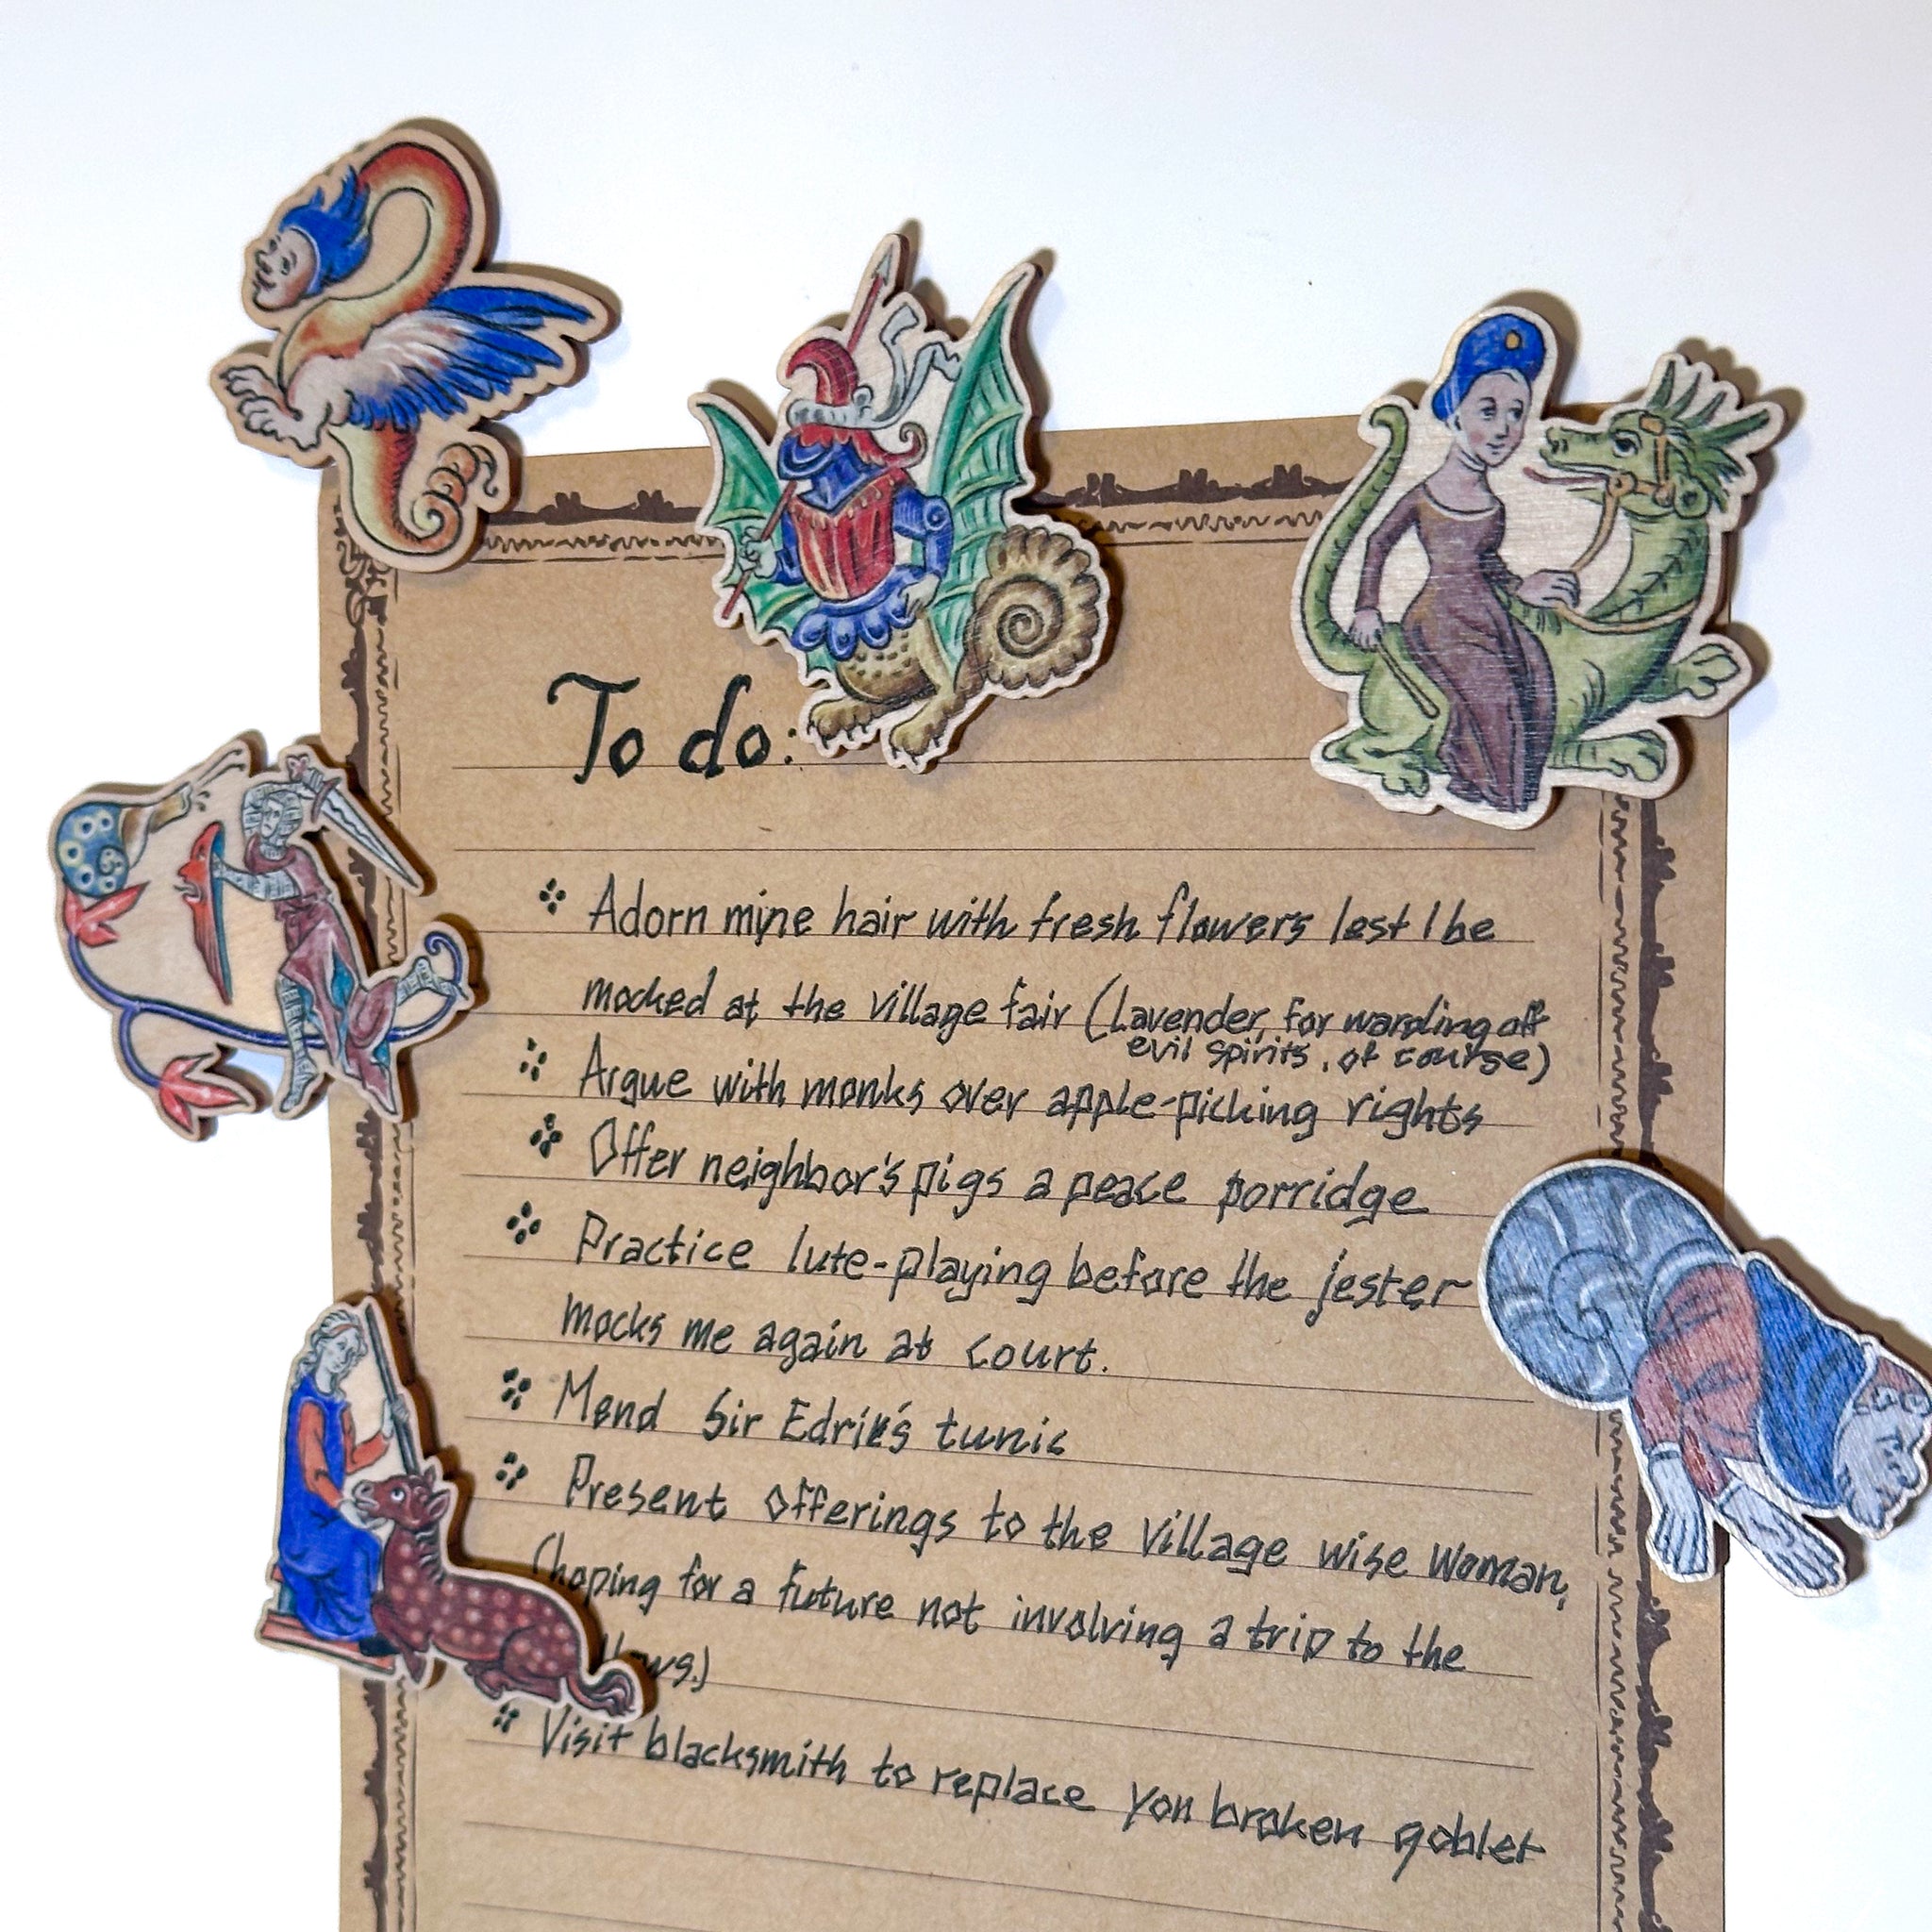 To do:
Adorn mine hair with fresh flowers lest I be
mocked at the village fair (Lavender, for warding off
evil spirits, of course)
Argue with monks over apple-picking rights
Offer neighbor's pigs a peace porridge
Practice lute-playing before the jester
mocks me again at court.
Mend Sir Edrik's tunic
Present offerings to the village wise woman,
(hoping for a future not involving a trip to the
Visit blacksmith to replace yon broken goblet